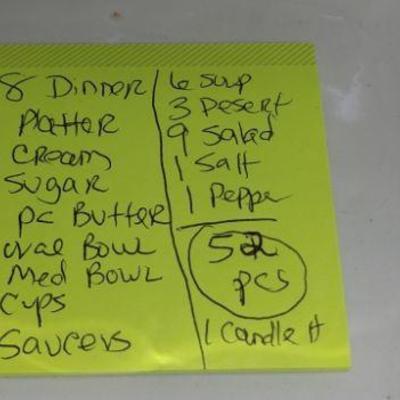 8 Dinner
Platter
Cream
Sugar
pc Butter
oval Bowl
Med Bowl
Cups
Saucers
6 Soup
3 Desert
9 Salad
1 Salt
1 Peppe
52
pcs
1 Candle H